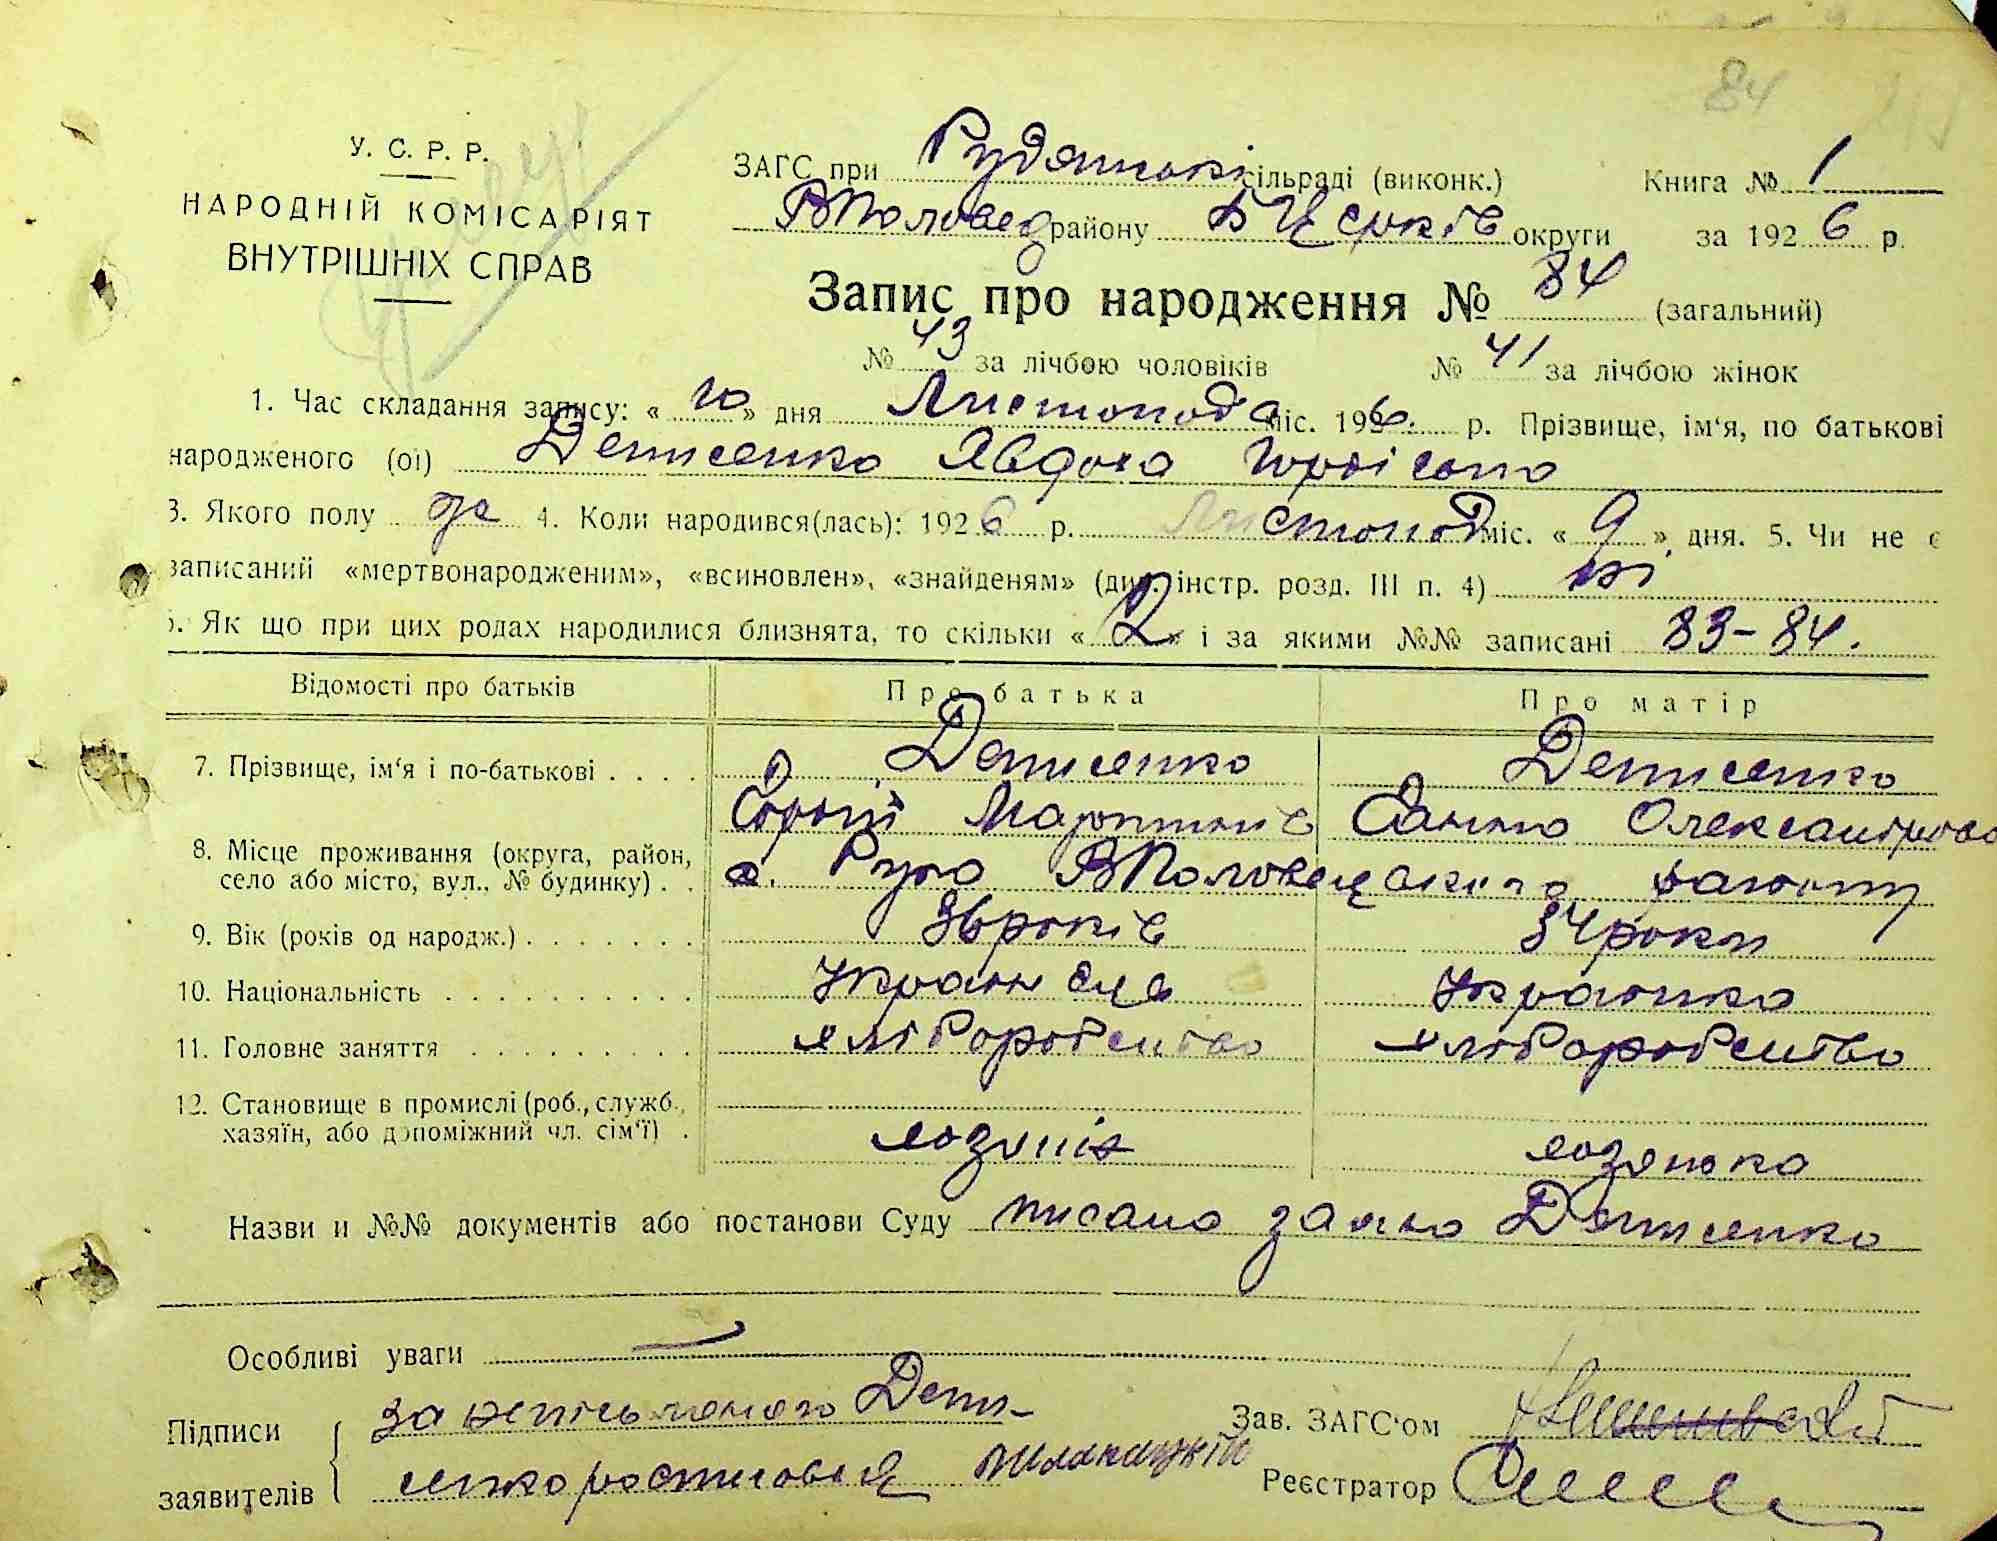 84
У. С. Р. Р.
НАРОДНІЙ КОМІСАРІЯТ
ВНУТРІШНІХ СПРАВ
ЗАГС при Рудянські сільраді (виконк.) Книга № 1
ВПоловец району БЦерків округи за 1926 р.
Запис про народження № 84 (загальний)
№ 43 за лічбою чоловіків № 41 за лічбою жінок
1. Час складання запису: « 10 » дня Листопода міс. 1926. р. Прізвище, ім'я, по батькові
народженого (ої) Денисенко Явдоха
3. Якого полу ж 4. Коли народився(лась): 1926 р. Листопод міс. « 9 » дня. 5. Чи не є
записаний «мертвонародженим», «всиновлен», «знайденям» (див. інстр. розд. III п. 4) ні
6. Як що при цих родах народилися близнята, то скільки « 2 » і за якими №№ записані 83-84.
Відомості про батьків Про батька Про матір
7. Прізвище, ім'я і по-батькові . . . . Денисенко Денисенко
Мартинів Ганна Олександрова
8. Місце проживання (округа, район,
село або місто, вул., № будинку) . . с. Руда ВПоловецького району
9. Вік (років од народж.) . . . . . . . 36 років 34 роки
10. Національність . . . . . . . . . . українець українка
11. Головне заняття . . . . . . . . . хліборобство хліборобство
12. Становище в промислі (роб., служб.,
хазяїн, або допоміжний чл. сім'ї) . хозяїн хозяйка
Назви и №№ документів або постанови Суду писано заяво Денисенко
Особливі уваги —
Підписи за неписьменого Дени-
заявителів сенко росписався
Зав. ЗАГС'ом
Реєстратор